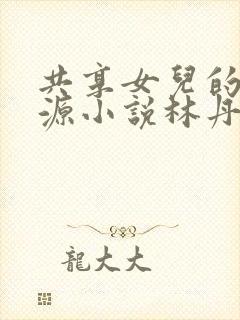 共享女兒的
源小說林丹
龍大大